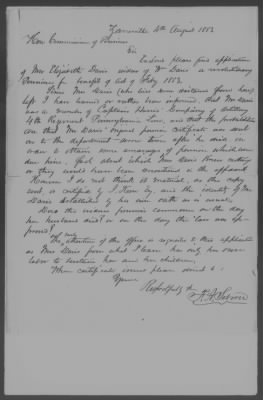 Zanesville 4th August 1853
Hon Commissioner of Pensions
Sir
Enclosed please find application
of Mrs Elizabeth Davis widow of Wm Davis a revolutionary
Pensioner for benefit of Act of Feby 1853.
Since Mrs Davis (who lives some distance from here)
left I have learned or rather been informed, that Mr Davis
was a member of Captain Company of Artillery
4th Regiment Pennsylvania Line, and that the probabilities
are that Mr Davis' original pension certificate was sent
on to the department some time after he died in
order to obtain some arrearages of pension which were
due him. Just about which Mrs Davis knew nothing
or they would have been mentioned in the affidavit
However I do not think it material, as the copy
sent is certified by and the identity of Mrs
Davis established by her own oath as is usual.
Does the widows pension commence on the day
her husband died? or on the day the law was ap-
proved?
The attention of the office is requested to this application
as Mrs Davis from what I learn has only her own
labor to sustain her and her children.
When certificate issues please send to
Yours
Respectfully &c